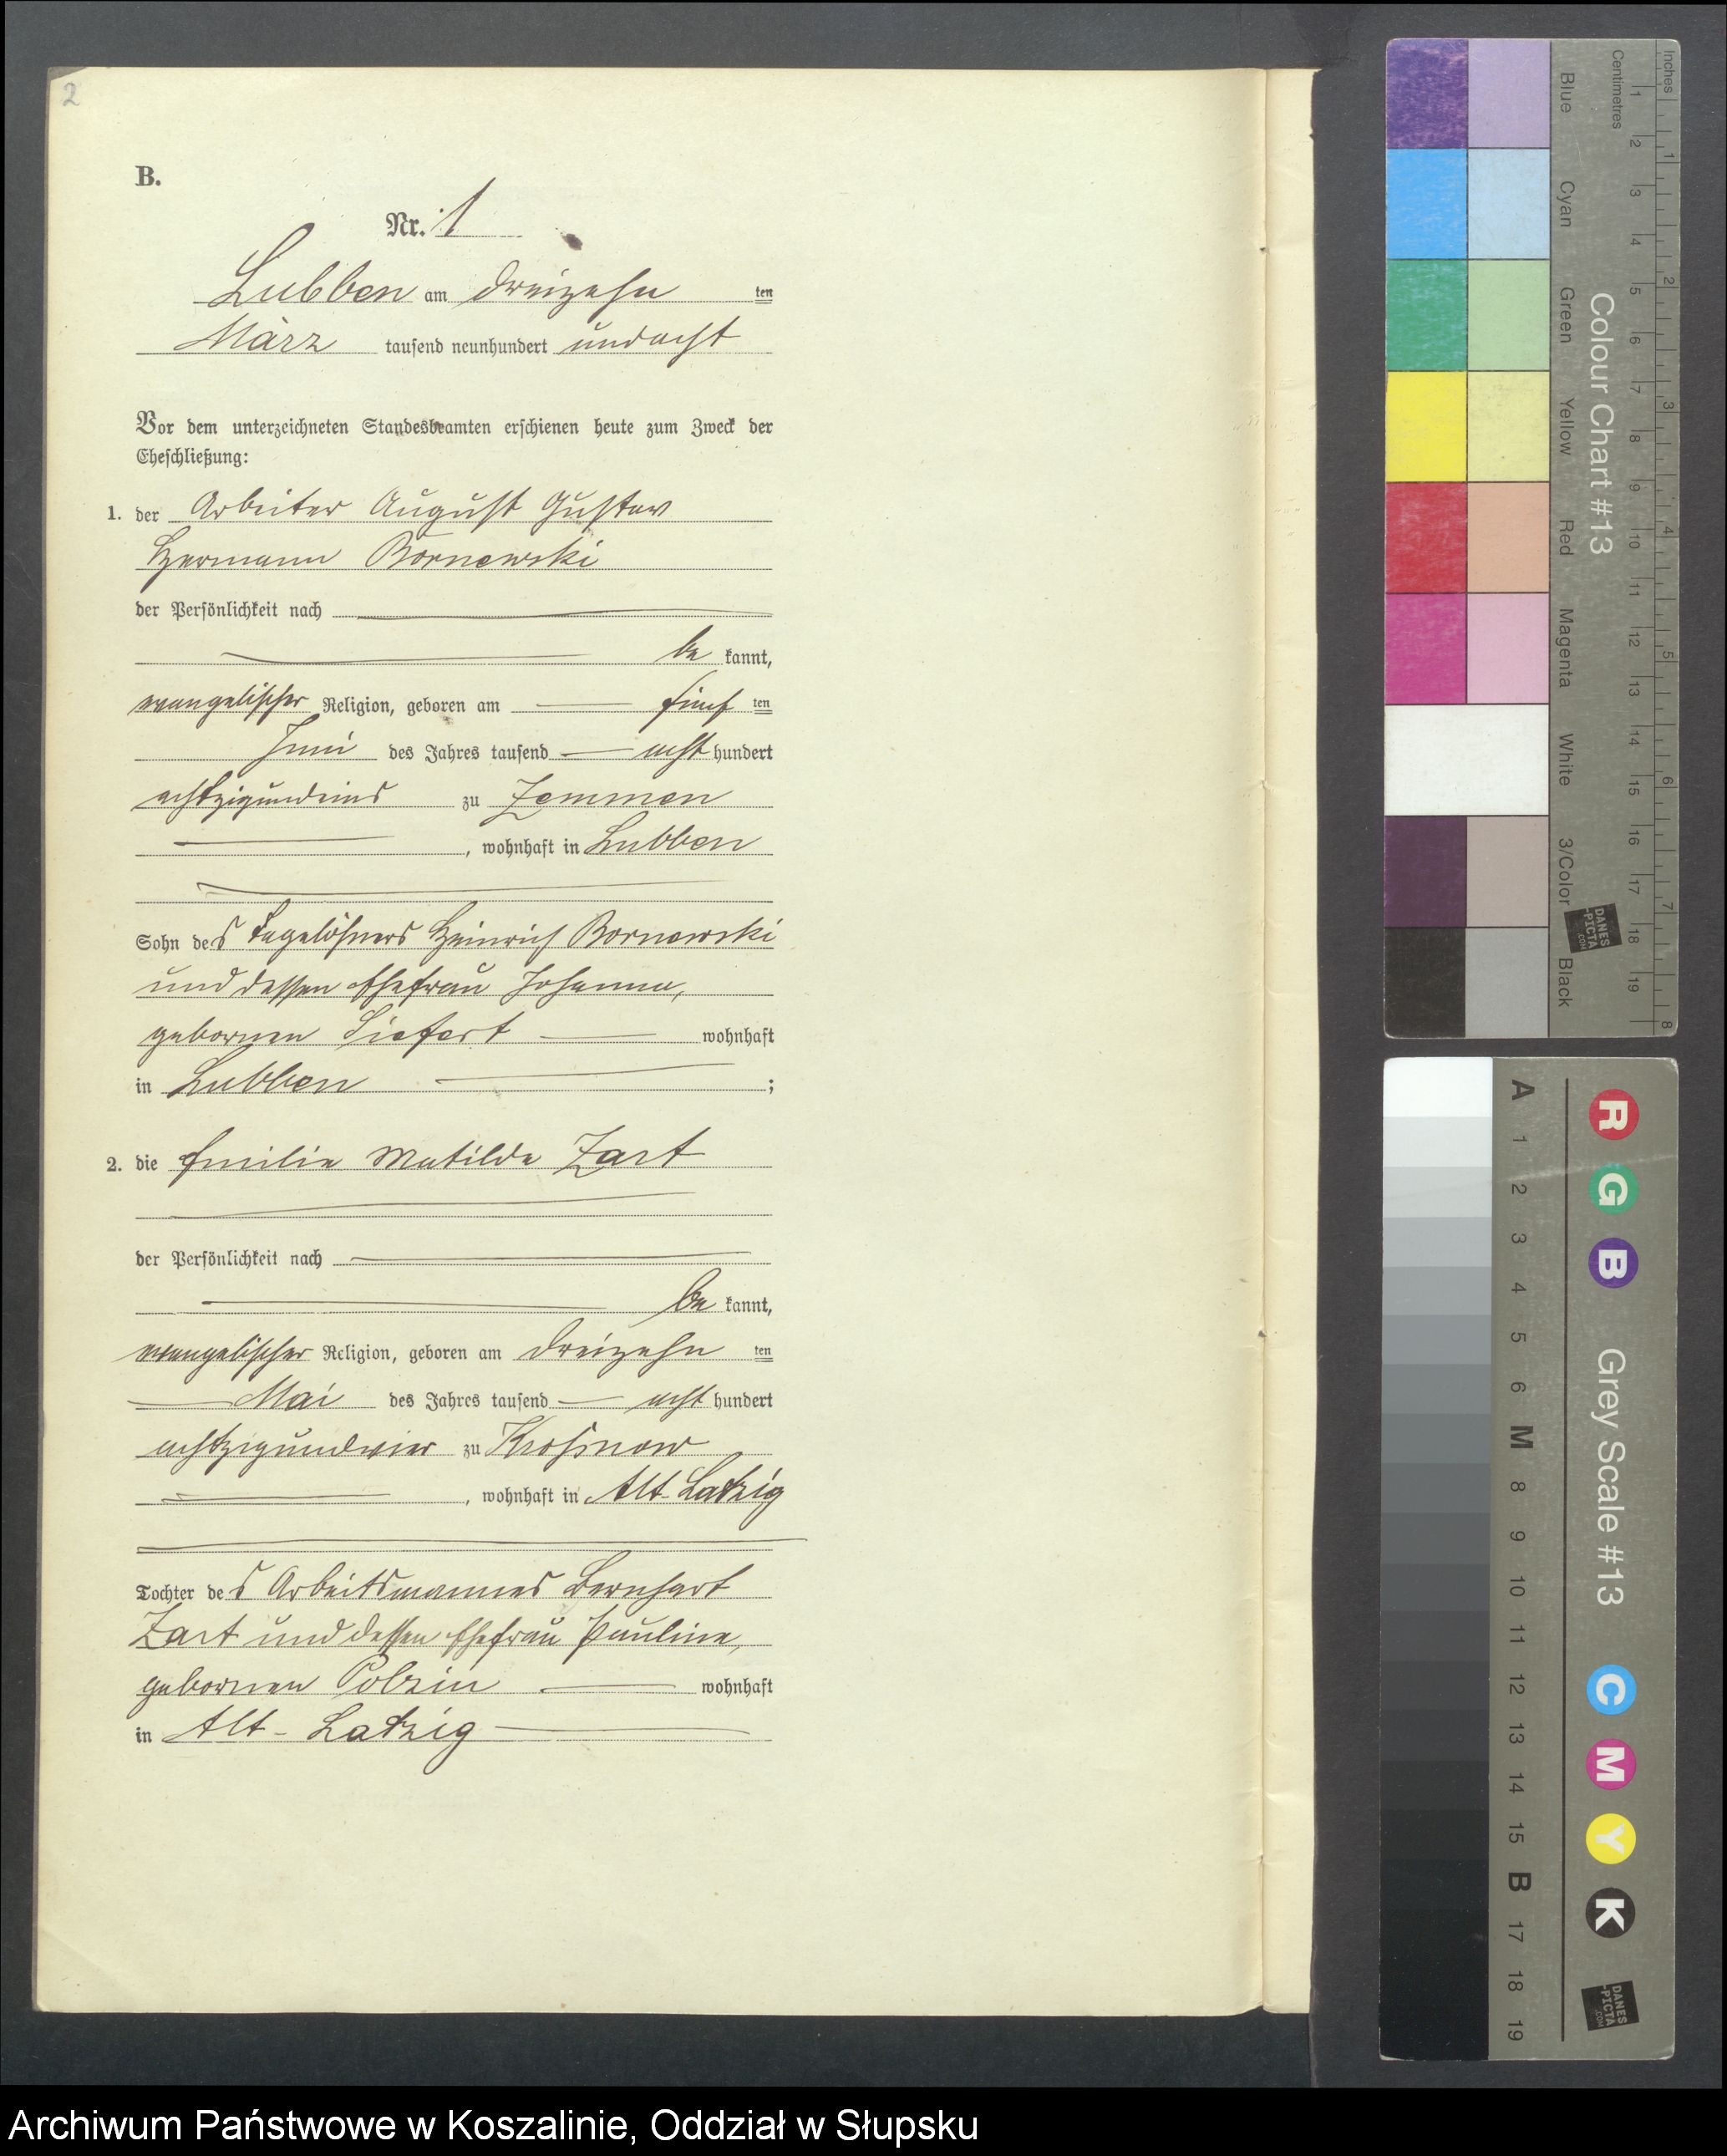 2
B.
Nr. 1
Lubben am dreizehn ten
März tausend neunhundert undacht
Vor dem unterzeichneten Standesbeamten erschienen heute zum Zweck der
Eheschließung:
1. der Arbeiter August Gustav
Hermann Bornowski
der Persönlichkeit nach
be kannt,
evangelischer Religion, geboren am fünf ten
Juni des Jahres tausend acht hundert
achtzigundeins zu Zemmen
, wohnhaft in Lubben
Sohn des Tagelöhners Heinrich Bornowski
und dessen Ehefrau Johanna,
gebornen Siefert wohnhaft
in Lubben ;
2. die Emilie Matilde Zart
der Persönlichkeit nach
be kannt,
evangelischer Religion, geboren am dreizehn ten
Mai des Jahres tausend acht hundert
achtzigundvier zu Krossnow
, wohnhaft in Alt-Latzig
Tochter des Arbeitsmannes Bernhart
Zart und dessen Ehefrau Pauline,
gebornen Polzin wohnhaft
in Alt-Latzig
Inches
Centimetres
1 2 3 4 5 6 7 8 9 10 11 12 13 14 15 16 17 18 19
1 2 3 4 5 6 7 8
Colour Chart #13
Blue Cyan Green Yellow Red Magenta White 3/Color Black
DANES
-PICTA
.COM
R G B
Grey Scale #13
C M Y K
A 1 2 3 4 5 6 M 8 9 10 11 12 13 14 15 B 17 18 19
DANES
-PICTA
.COM
Archiwum Państwowe w Koszalinie, Oddział w Słupsku